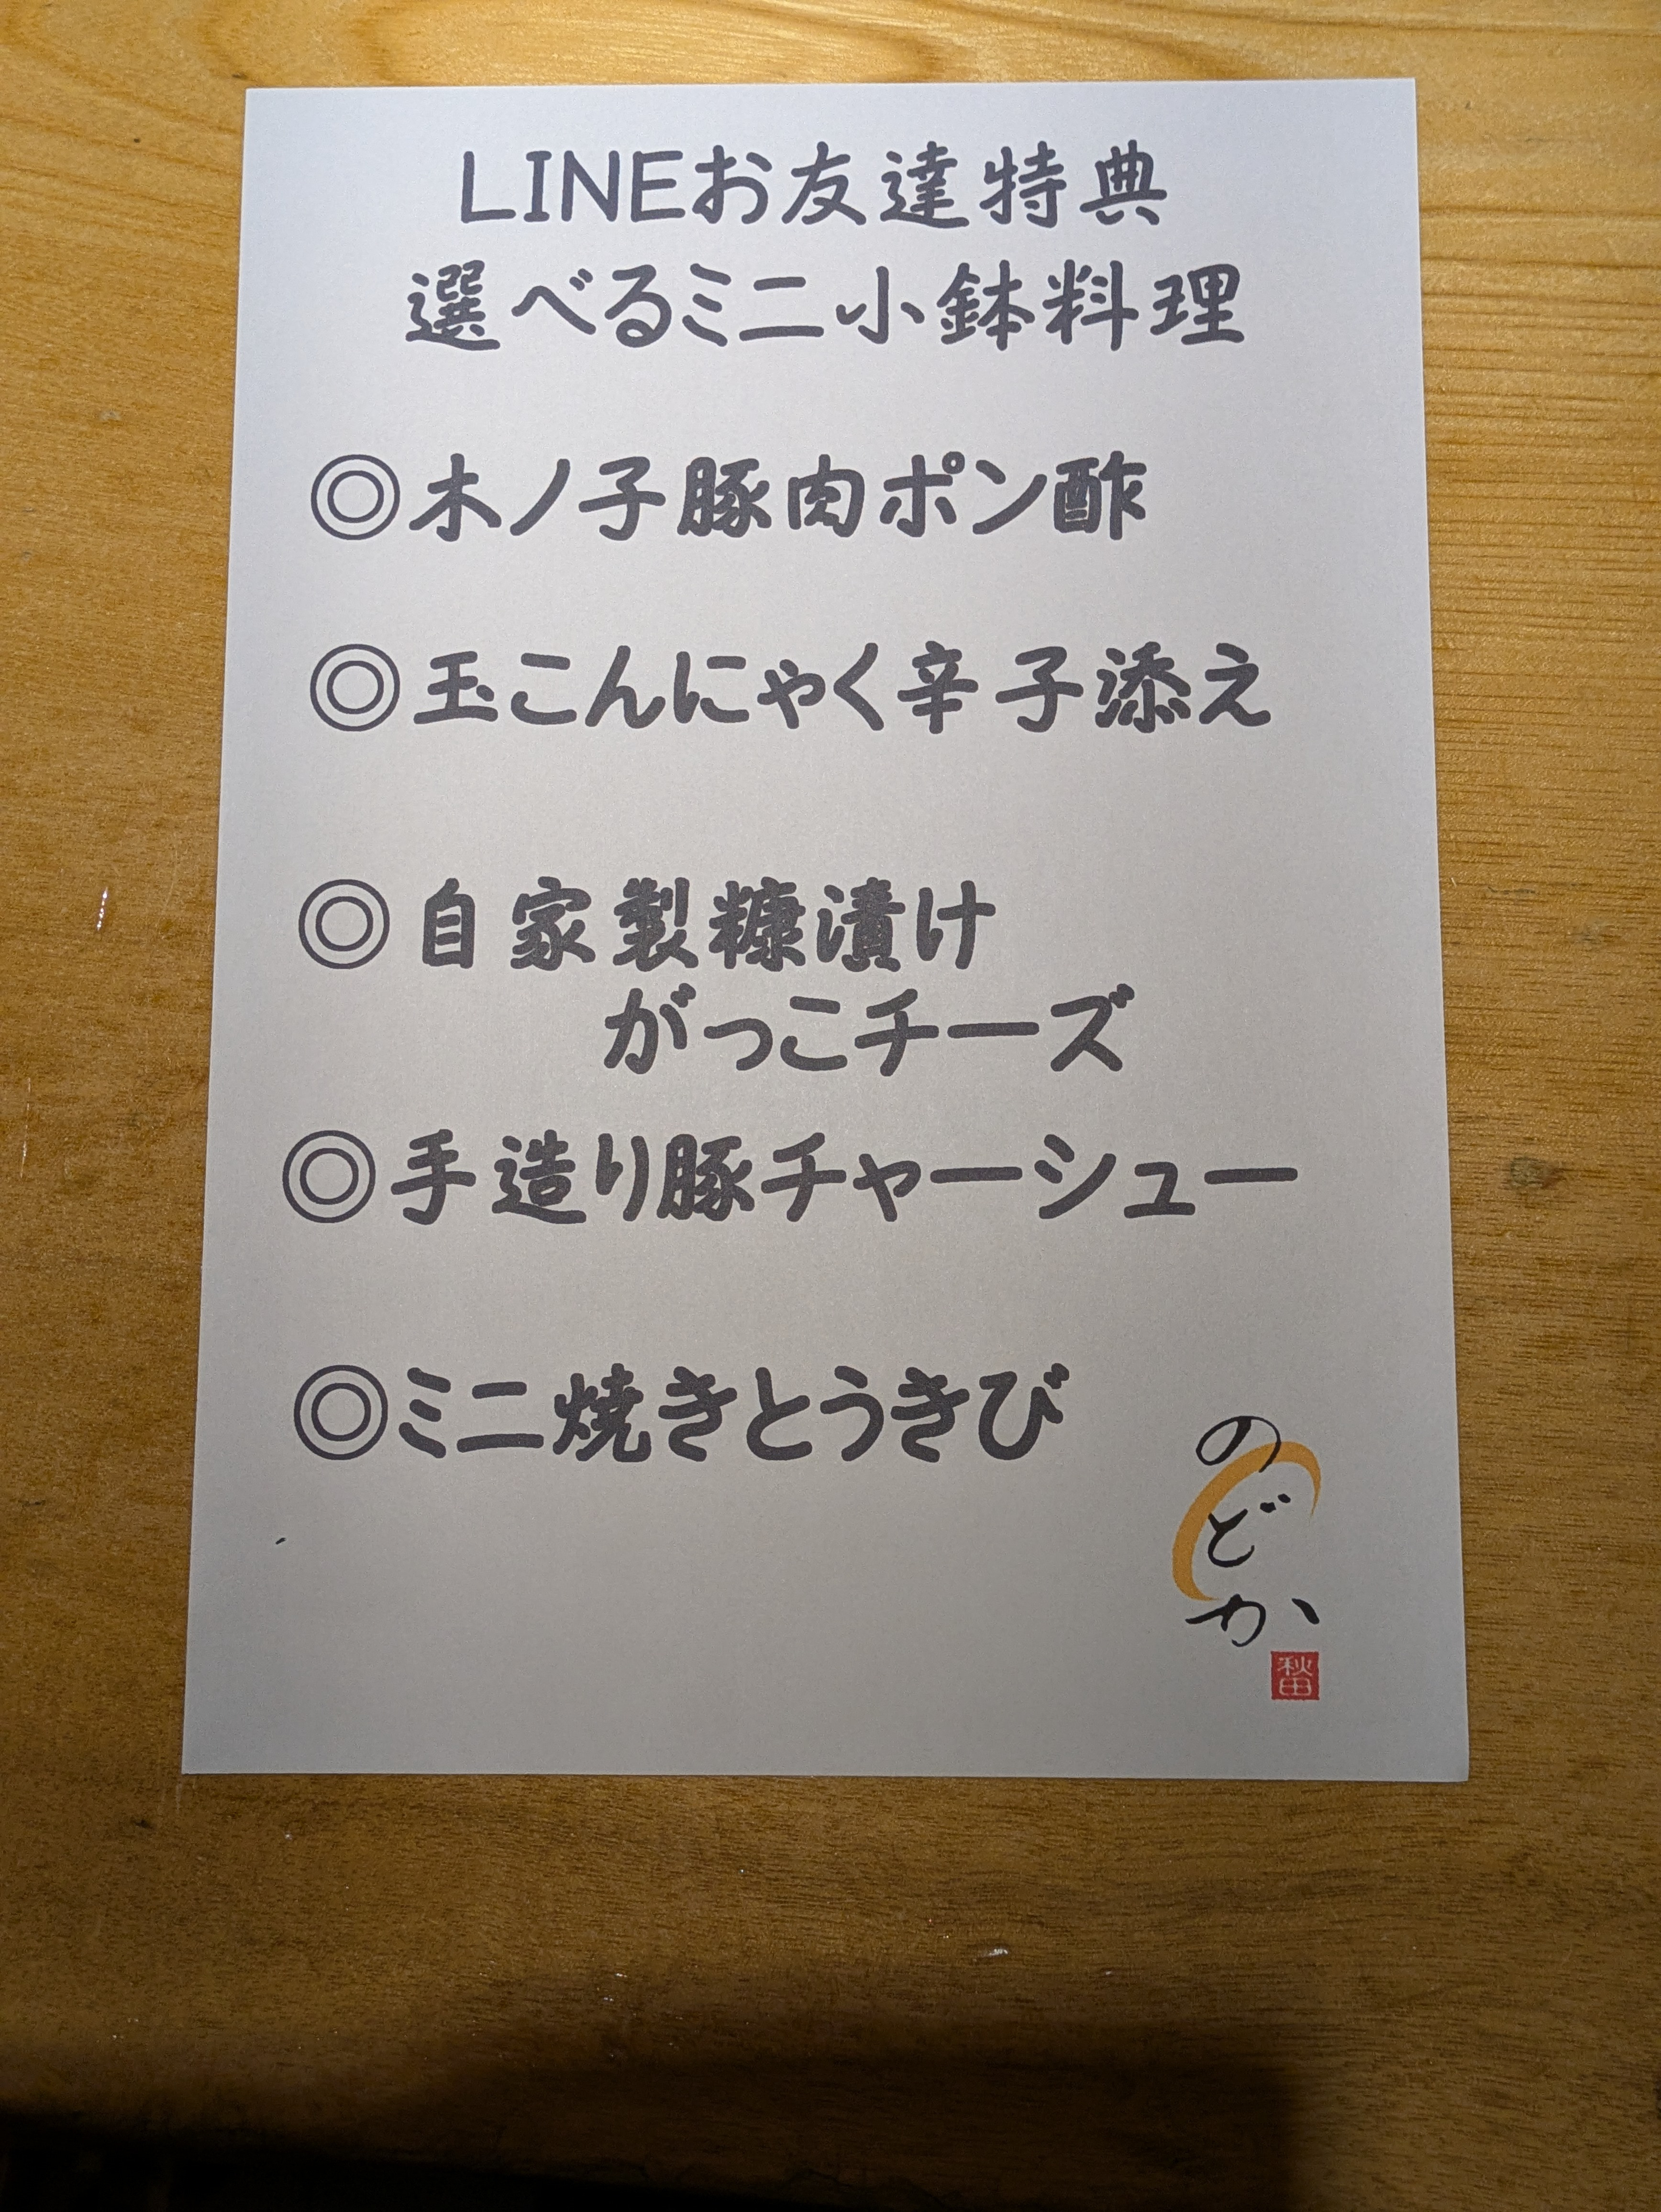 LINEお友達特典
選べるミニ小鉢料理
◎木ノ子豚肉ポン酢
◎玉こんにゃく辛子添え
◎自家製糠漬け
がっこチーズ
◎手造り豚チャーシュー
◎ミニ焼きとうきび
のどか
秋田